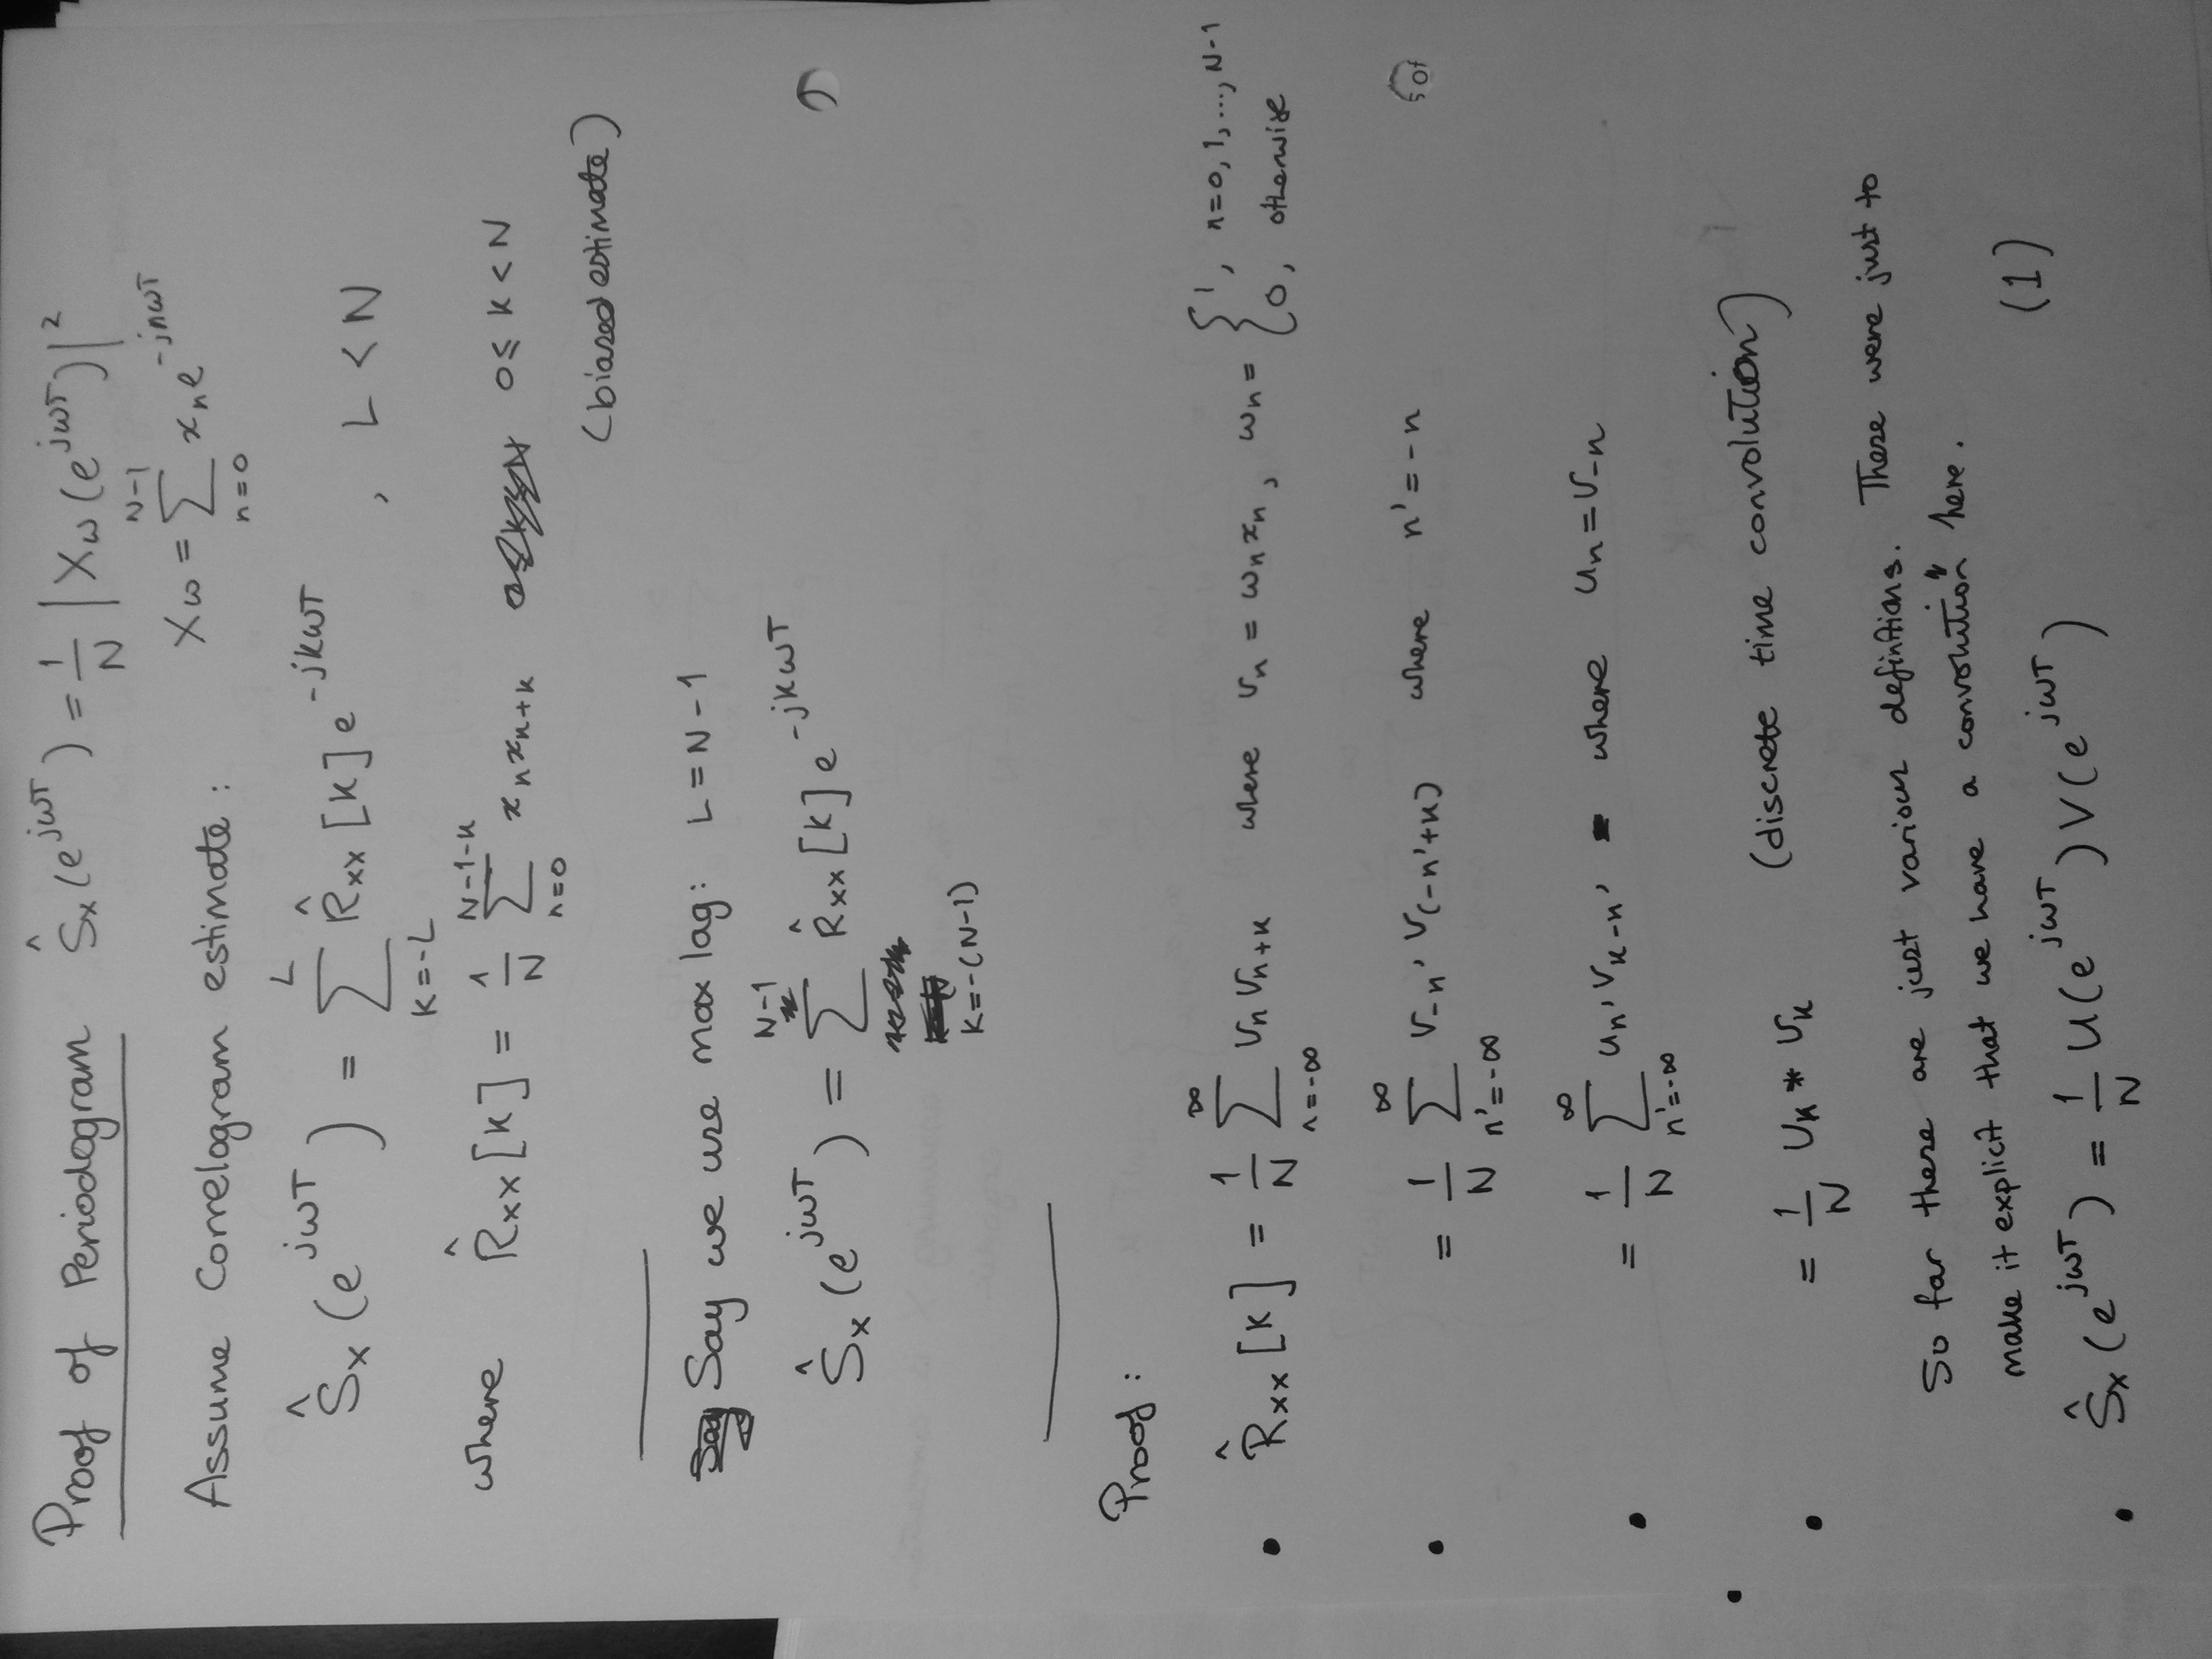 Proof of Periodogram Ŝx(e^{jωT}) = 1/N |Xω(e^{jωT})|²
Xω = Σ_{n=0}^{N-1} xₙe^{-jnωT}
Assume Correlogram estimate:
Ŝx(e^{jωT}) = Σ_{k=-L}^{L} R̂xx[k]e^{-jkωT} , L < N
where R̂xx[k] = 1/N Σ_{n=0}^{N-1-k} xₙxₙ₊ₖ 0≤ k < N
(biased estimate)
Say we use max lag: L = N-1
Ŝx(e^{jωT}) = Σ_{k=-(N-1)}^{N-1} R̂xx[k]e^{-jkωT}
Proof:
• R̂xx[k] = 1/N Σ_{n=-∞}^{∞} vₙvₙ₊ₖ where vₙ = ωₙxₙ, ωₙ = {1, n=0,1,...,N-1
{0, otherwise
• = 1/N Σ_{n'=-∞}^{∞} v_{-n'} v_{(-n'+k)} where n' = -n
• = 1/N Σ_{n'=-∞}^{∞} u_{n'} v_{k-n'} where uₙ = v₋ₙ
• = 1/N uₖ * vₖ (discrete time convolution)
So far these are just various definitions. These were just to
make it explicit that we have a convolution here.
• Ŝx(e^{jωT}) = 1/N U(e^{jωT})V(e^{jωT}) (1)